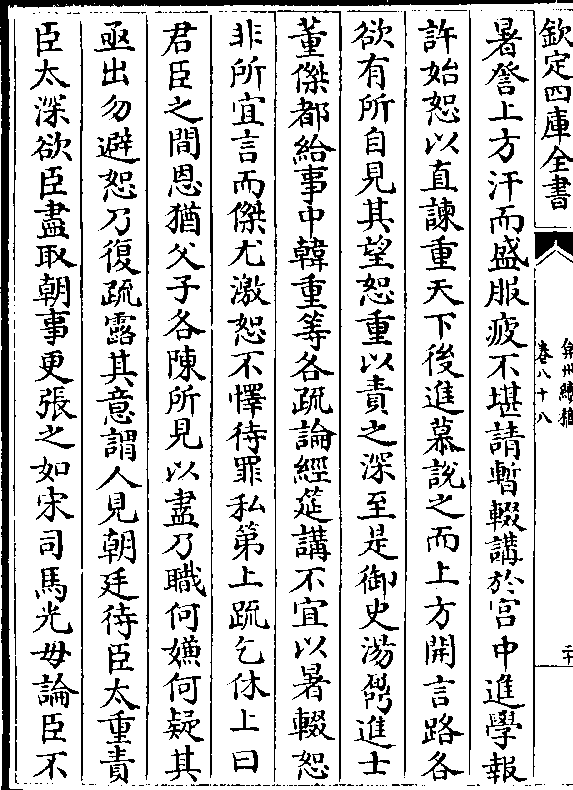 欽定四庫全書
弇州續稿
卷八十八
二十
暑詧上方汗而盛服疲不堪請暫輟講於宮中進學報
許始恕以直諫重天下後進慕說之而上方開言路各
欲有所自見其望恕重以責之深至是御史湯鼐進士
董傑都給事中韓重等各疏論經筵講不宜以暑輟恕
非所宜言而傑尤激恕不懌待罪私第上疏乞休上曰
君臣之間恩猶父子各陳所見以盡乃職何嫌何疑其
亟出勿避恕乃復疏露其意謂人見朝廷待臣太重責
臣太深欲臣盡取朝事更張之如宋司馬光毋論臣不